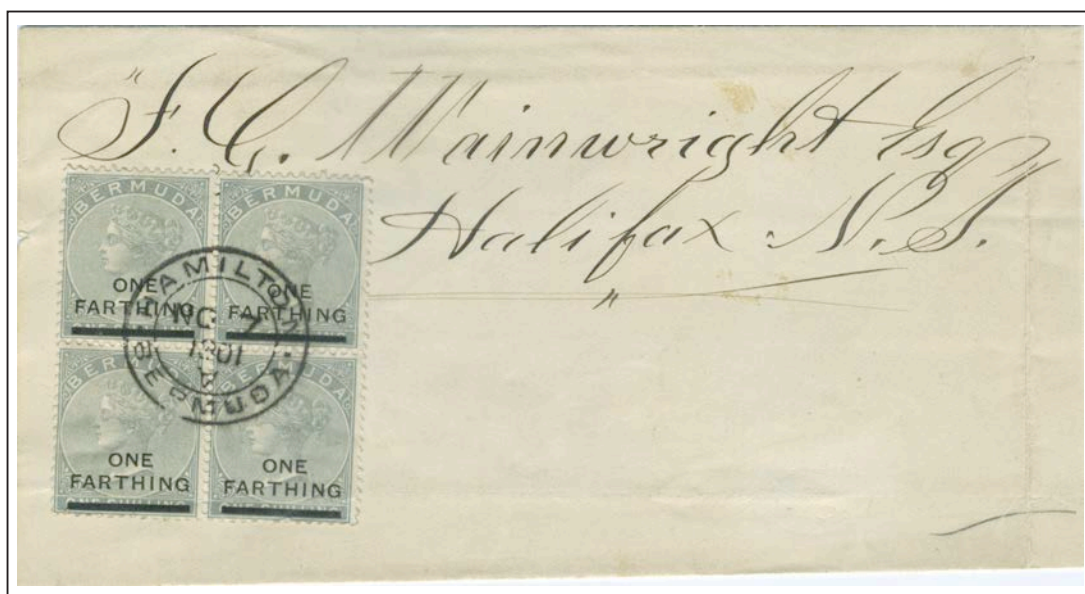 F. C. Wainwright Esq
Halifax N.S.
BERMUDA
ONE
FARTHING
BERMUDA
ONE
FARTHING
BERMUDA
ONE
FARTHING
BERMUDA
ONE
FARTHING
HAMILTON
7
1901
BERMUDA